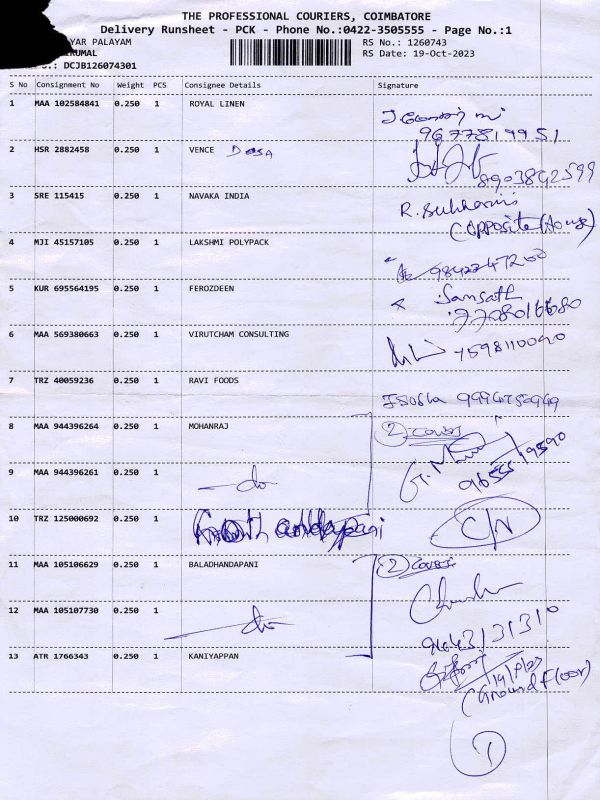 THE PROFESSIONAL COURIERS, COIMBATORE
Delivery Runsheet - PCK - Phone No.:0422-3505555 - Page No.:1
YAR PALAYAM
RUMAL
.: DCJB126074301
RS No.: 1260743
RS Date: 19-Oct-2023
S No Consignment No Weight PCS Consignee Details Signature
1 MAA 102584841 0.250 1 ROYAL LINEN
9677819951
2 HSR 2882458 0.250 1 VENCE
8903842599
3 SRE 115415 0.250 1 NAVAKA INDIA
R.
Opposite (House)
4 MJI 45157105 0.250 1 LAKSHMI POLYPACK
9842247200
5 KUR 695564195 0.250 1 FEROZDEEN
Samsath
7708016680
6 MAA 569380663 0.250 1 VIRUTCHAM CONSULTING
7598110090
7 TRZ 40059236 0.250 1 RAVI FOODS
8 MAA 944396264 0.250 1 MOHANRAJ
(2)
9 MAA 944396261 0.250 1
do
10 TRZ 125000692 0.250 1
C/N
11 MAA 105106629 0.250 1 BALADHANDAPANI
(2)
12 MAA 105107730 0.250 1
do
9643131310
13 ATR 1766343 0.250 1 KANIYAPPAN
(Ground Floor)
1